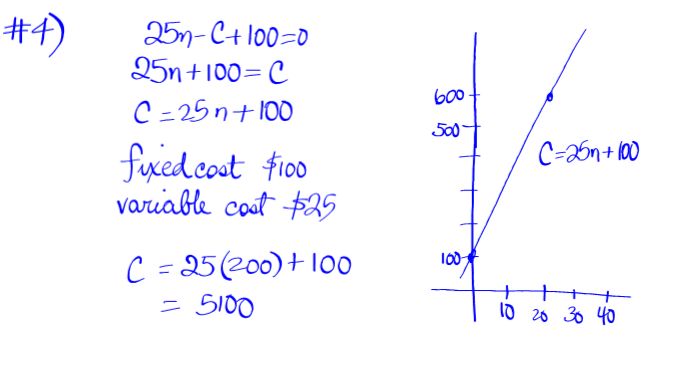 #4)
25n-C+100=0
25n+100=C
C=25n+100
fixed cost $100
variable cost $25
C = 25(200)+100
= 5100
600
500
C=25n+100
100
10 20 30 40